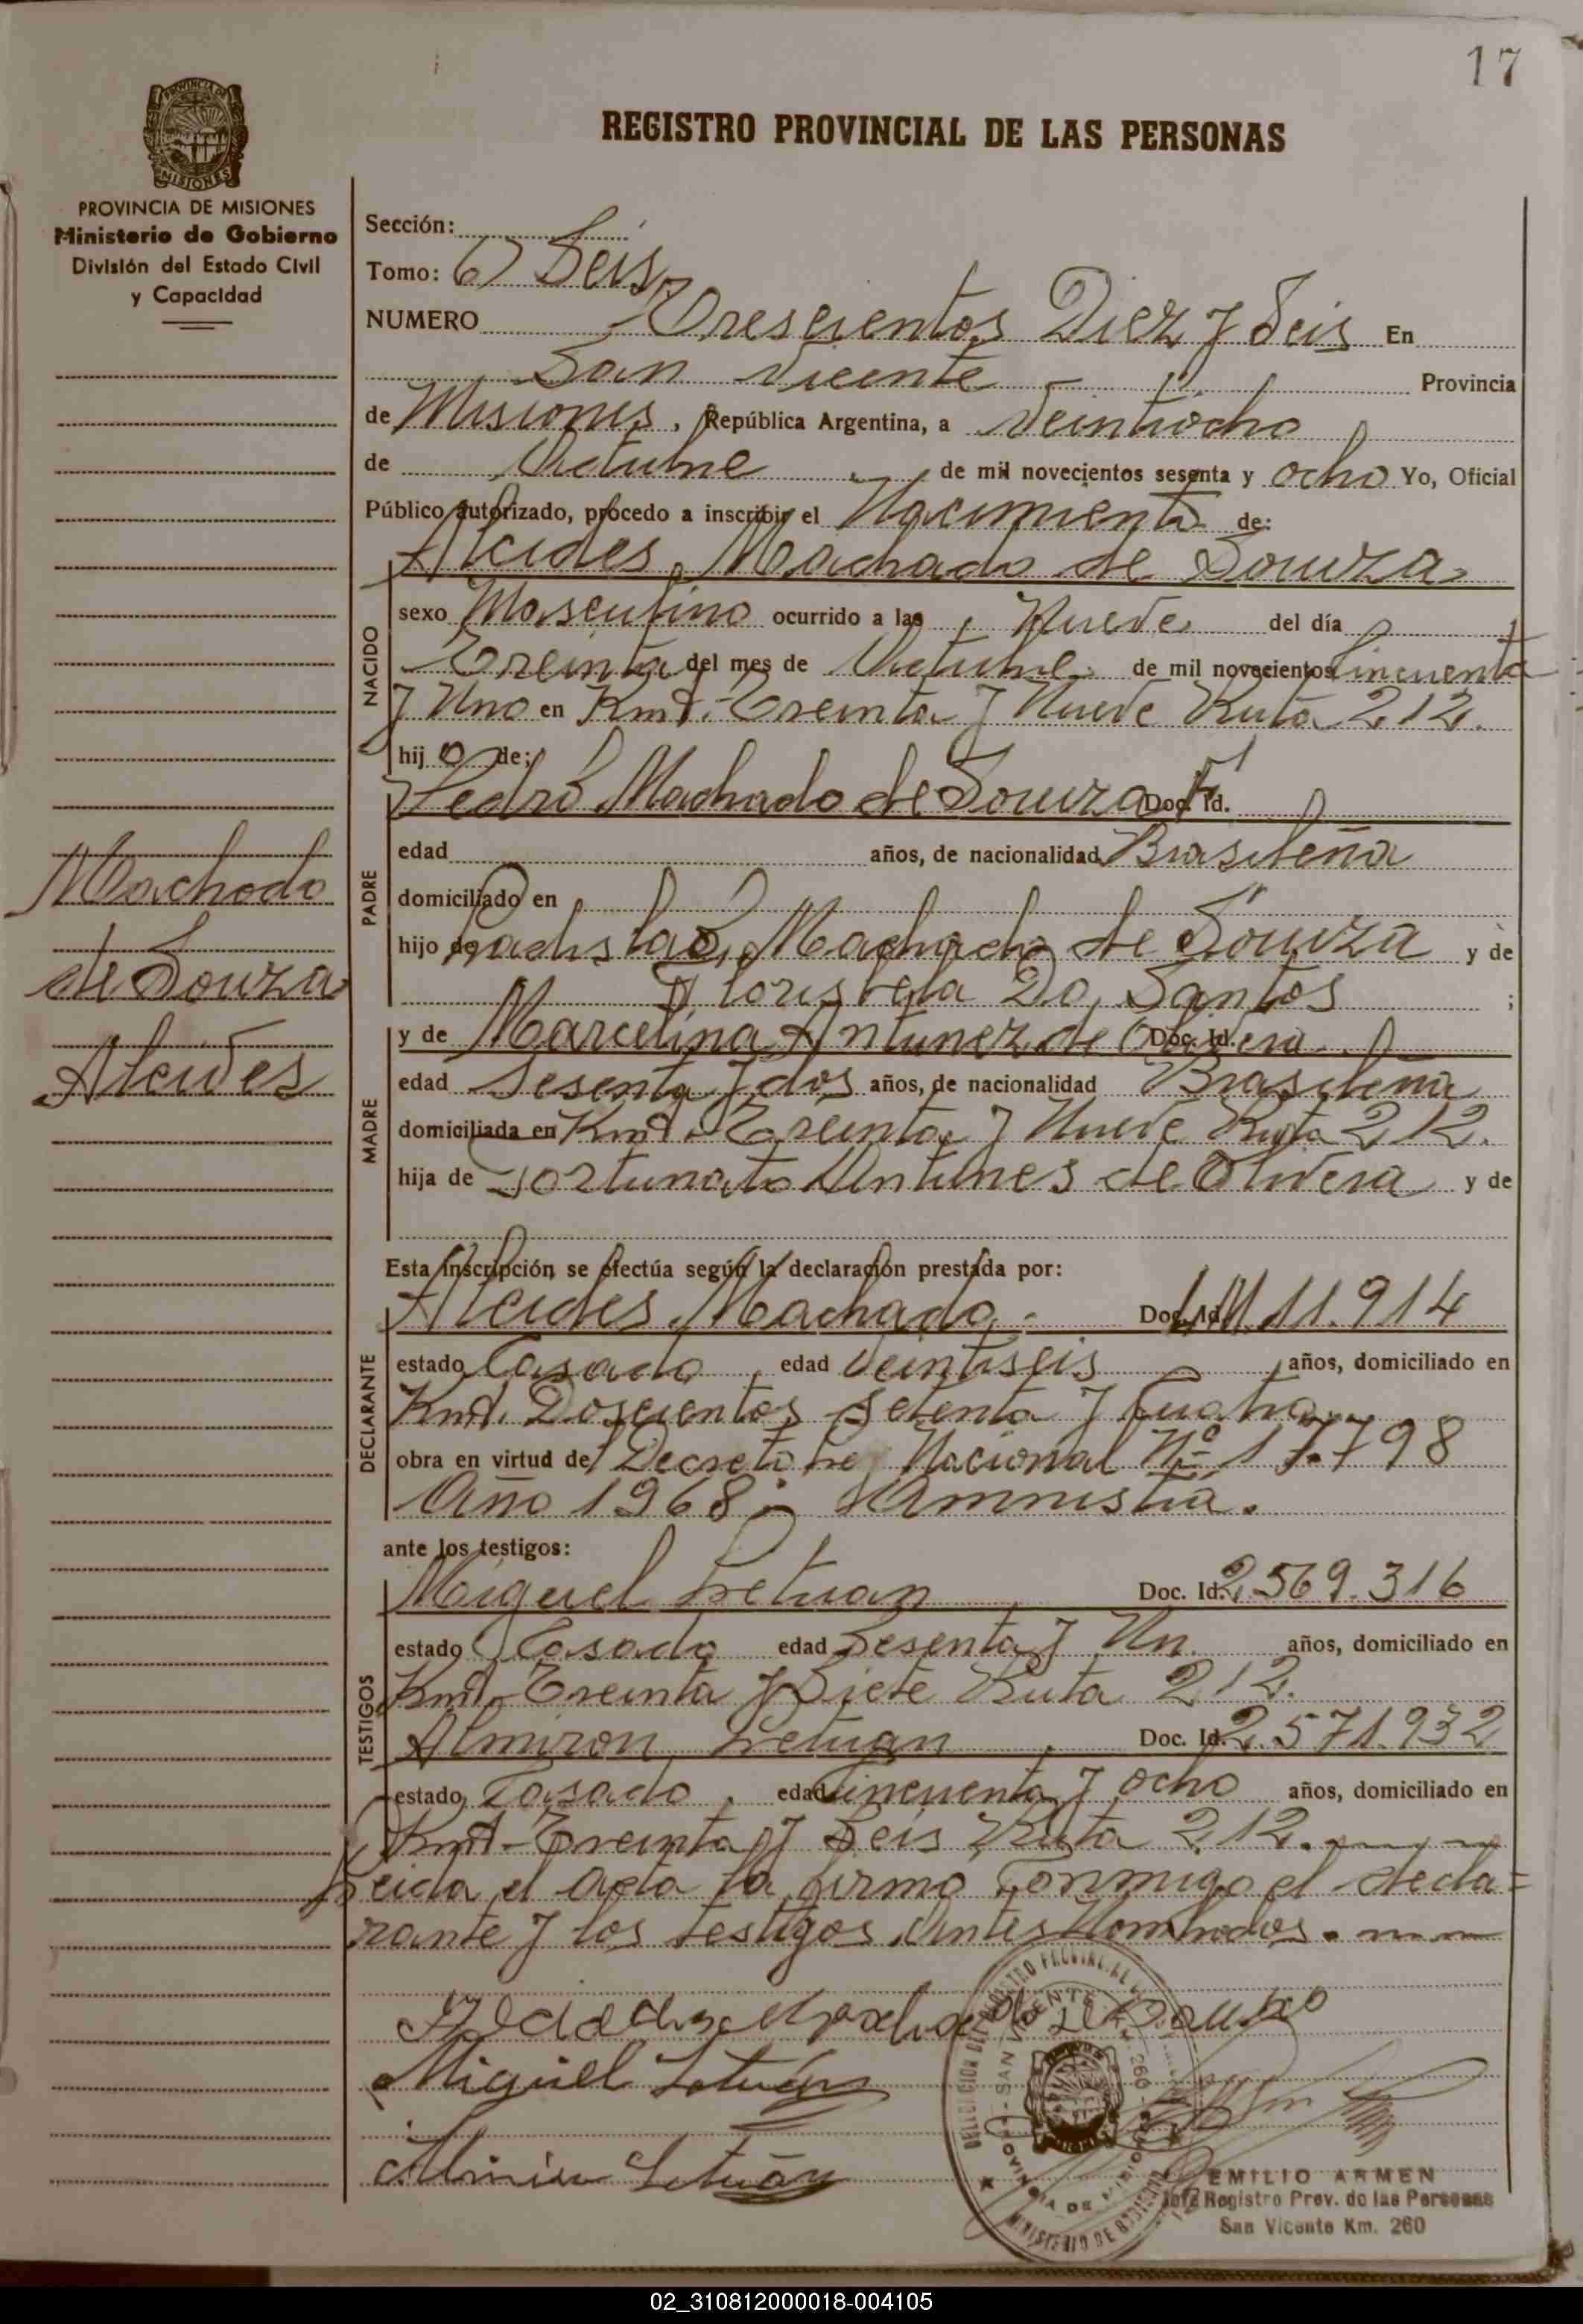 17
PROVINCIA DE MISIONES
REGISTRO PROVINCIAL DE LAS PERSONAS
PROVINCIA DE MISIONES
Ministerio de Gobierno
División del Estado Civil
y Capacidad
Machado
de Souza
Alcides
Sección:
Tomo: 6) Seis
NUMERO Trescientos Diez y Seis En
San Vicente Provincia
de Misiones, República Argentina, a Veintiocho
de Octubre de mil novecientos sesenta y ocho Yo, Oficial
Público autorizado, procedo a inscribir el Nacimiento de:
Alcides Machado de Souza
NACIDO
sexo Masculino ocurrido a las Nueve del día
Treinta del mes de Octubre de mil novecientos Cincuenta
y Uno en Kmt. Treinta y Nueve Ruta 212.
hijo de:
PADRE
Pedro Machado de Souza Doc. Id.
edad años, de nacionalidad Brasileña
domiciliado en
hijo de Machado de Souza y de
Do Santos ;
MADRE
y de Marcelina Antunez de Doc. Id.
edad Sesenta y dos años, de nacionalidad Brasileña
domiciliada en Kmt. Treinta y Nueve Ruta 212.
hija de Fortunato Antunes de Olivera y de
Esta inscripción se efectúa según la declaración prestada por:
DECLARANTE
Alcides Machado. Doc. Id. 11.914
estado Casado, edad Veintiseis años, domiciliado en
Kmt. Doscientos Setenta y Cuatro
obra en virtud de Decreto Ley Nacional Nº 17.798
Año 1968. Amnistia.
ante los testigos:
TESTIGOS
Miguel Doc. Id. 2.569.316
estado Casado edad Sesenta y Un años, domiciliado en
Kmt. Treinta y Siete Ruta 212.
Almiron Doc. Id. 2.571.932
estado Casado. edad Cincuenta y ocho años, domiciliado en
Kmt. Treinta y Seis Ruta 212.
Leida el acta la firma conmigo el decla=
rante y los testigos Antes Nombrados.
Miguel
EMILIO ARMEN
Jefe Registro Prov. de las Personas
San Vicente Km. 260
02_310812000018-004105